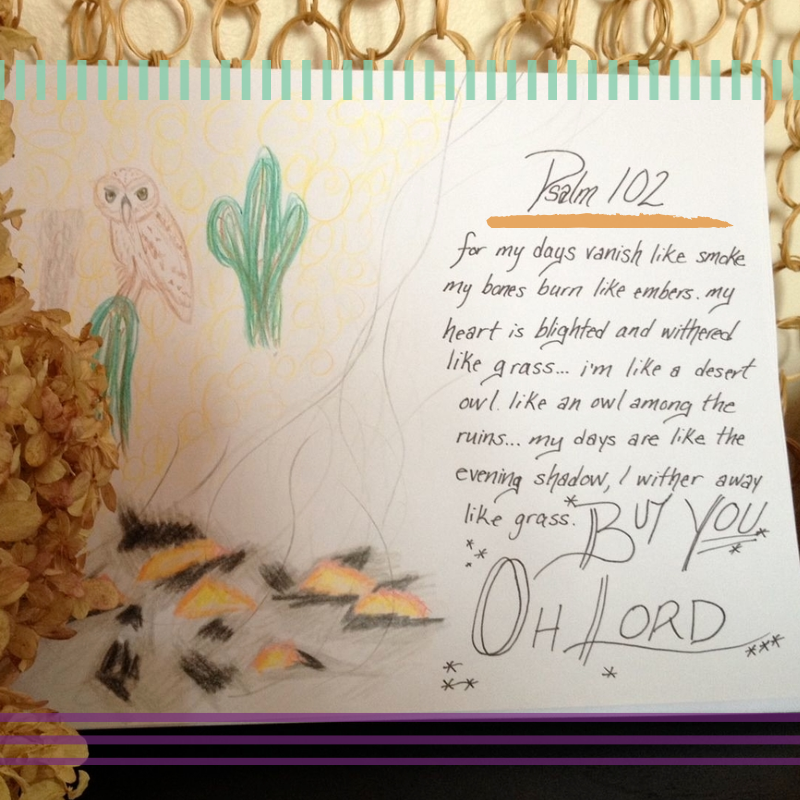 Psalm 102
for my days vanish like smoke
my bones burn like embers. my
heart is blighted and withered
like grass... i'm like a desert
owl. like an owl among the
ruins... my days are like the
evening shadow, I wither away
like grass. BUT YOU
OH LORD